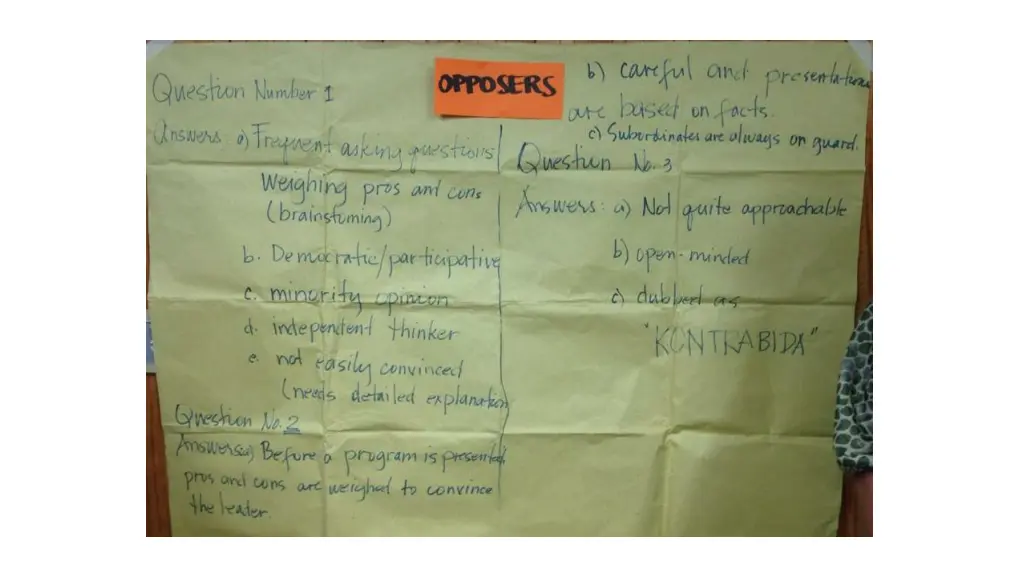 OPPOSERS
Question Number 1
Answers: a) Frequent asking questions
Weighing pros and cons
(brainstorming)
b. Democratic/participative
c. minority opinion
d. independent thinker
e. not easily convinced
(needs detailed explanation
Question No. 2
Answers: a) Before a program is presented
pros and cons are weighed to convince
the leader.
b) careful and presentations
are based on facts.
c) Subordinates are always on guard.
Question No. 3
Answers: a) Not quite approachable
b) open-minded
c) dubbed as
"KONTRABIDA"